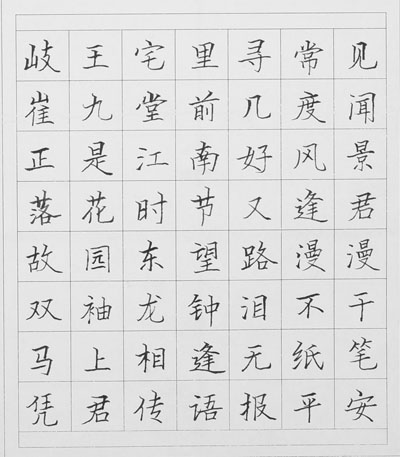 岐王宅里寻常见
崔九堂前几度闻
正是江南好风景
落花时节又逢君
故园东望路漫漫
双袖龙钟泪不干
马上相逢无纸笔
凭君传语报平安